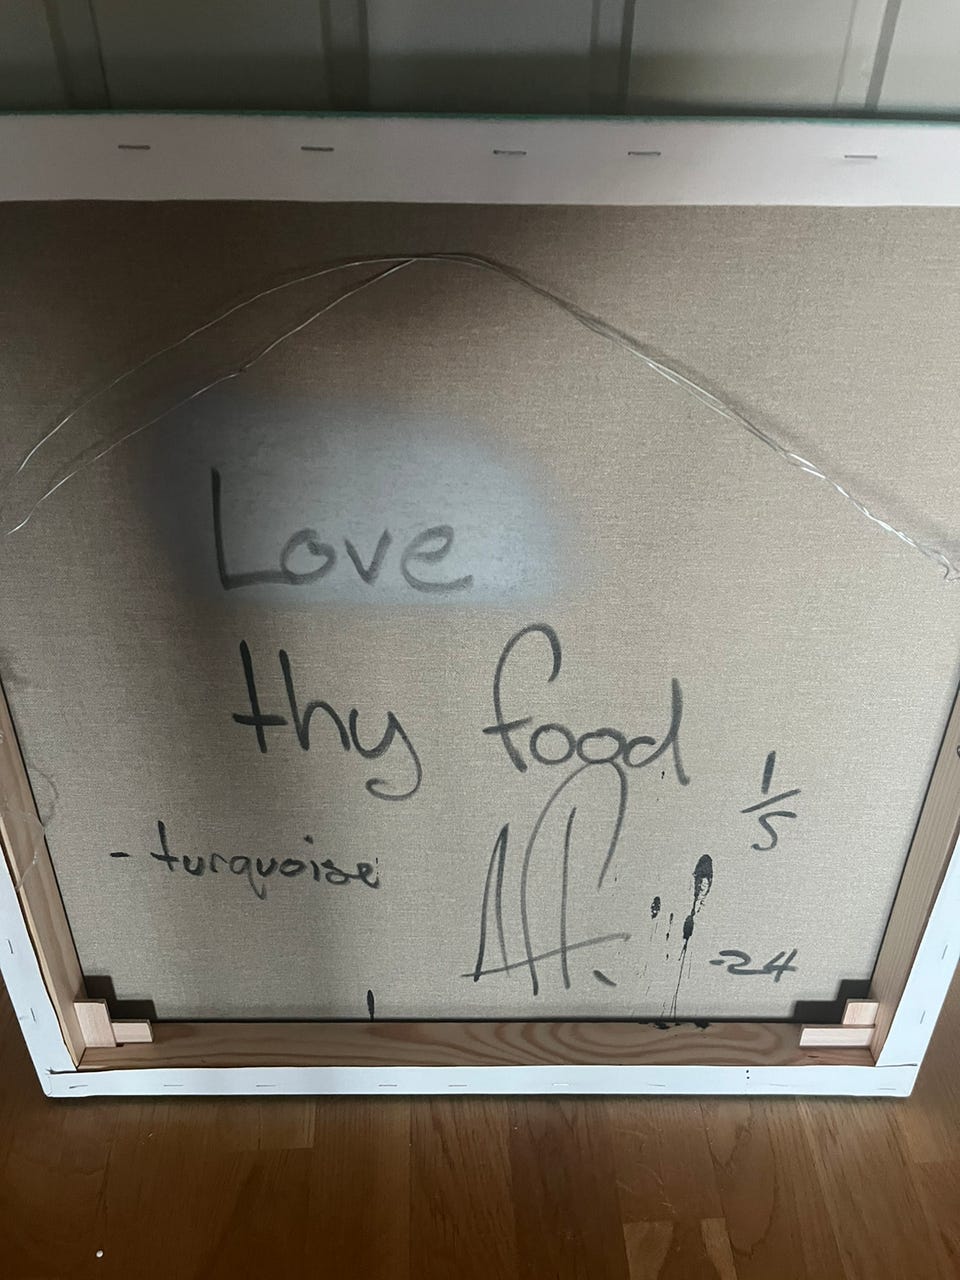 Love
thy food
1/5
- turquoise
-24